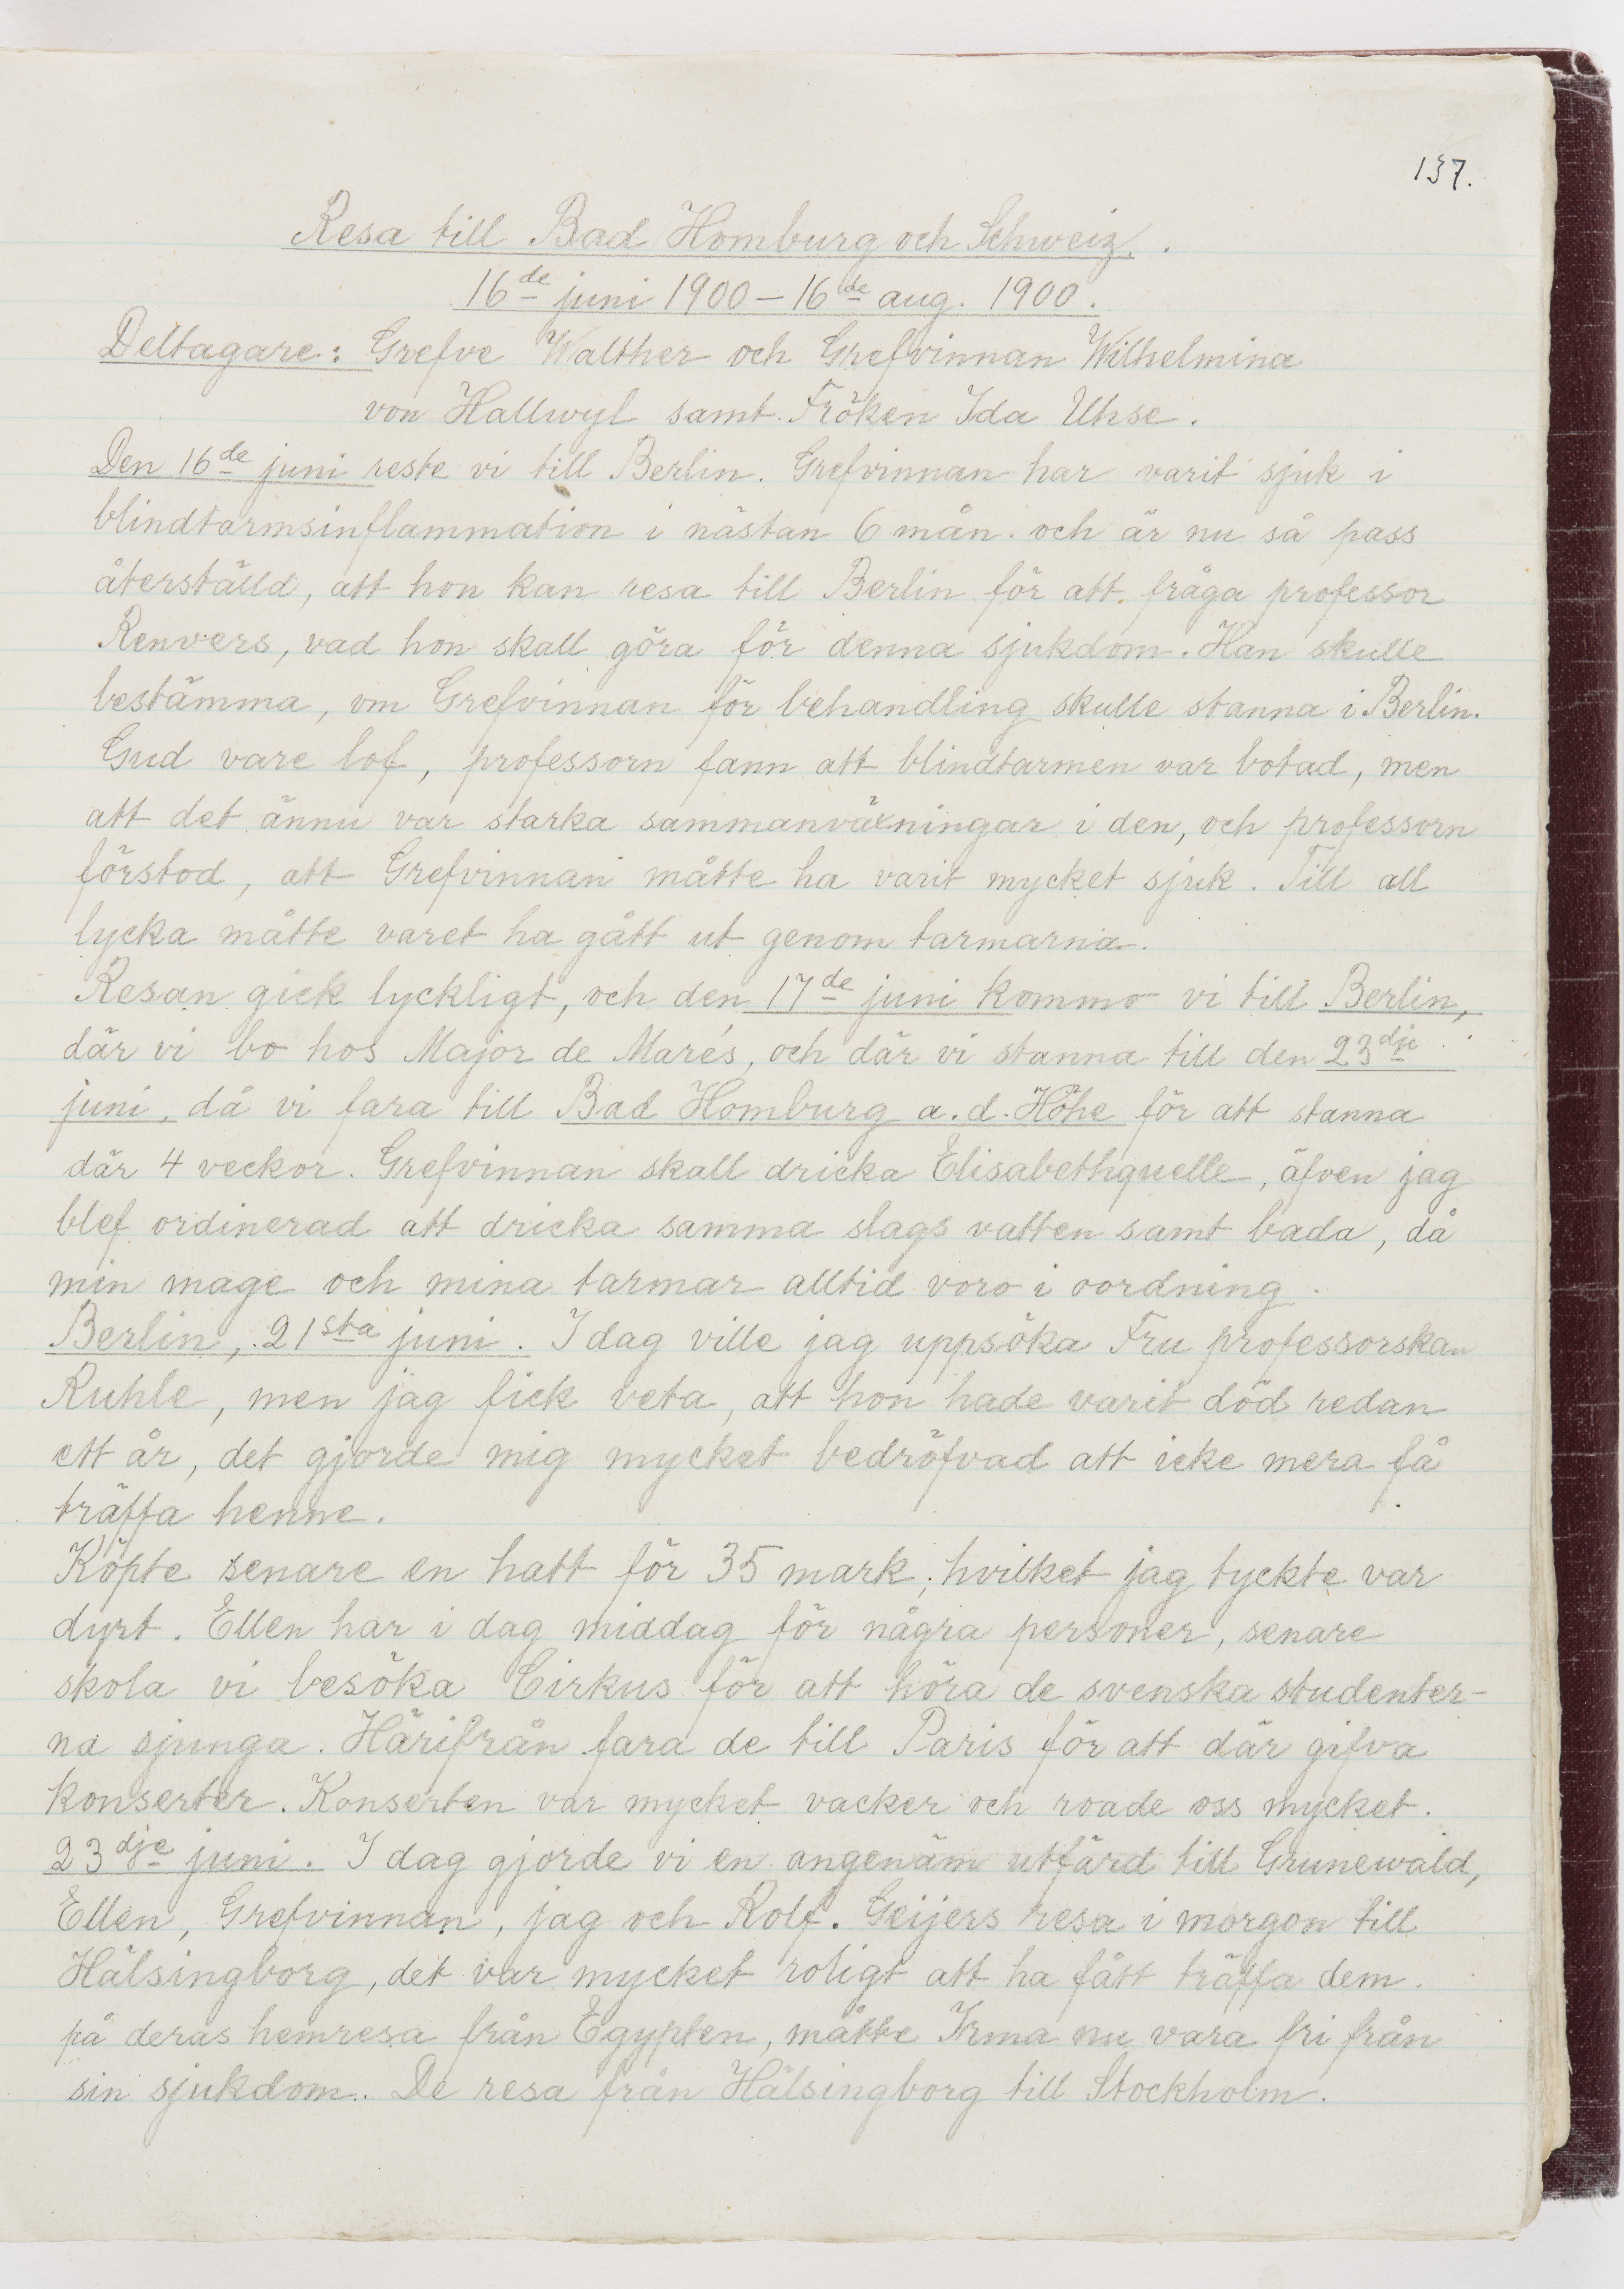 137.
Resa till Bad Homburg och Schweiz.
16de juni 1900 – 16de aug. 1900.
Deltagare: Grefve Walther och Grefvinnan Wilhelmina
von Hallwyl samt Fröken Ida Uhse.
Den 16de juni reste vi till Berlin. Grefvinnan har varit sjuk i
blindtarmsinflammation i nästan 6 mån. och är nu så pass
återställd, att hon kan resa till Berlin för att fråga professor
Renvers, vad hon skall göra för denna sjukdom. Han skulle
bestämma, om Grefvinnan för behandling skulle stanna i Berlin.
Gud vare lof, professorn fann att blindtarmen var botad, men
att det ännu var starka sammanväxningar i den, och professorn
förstod, att Grefvinnan måtte ha varit mycket sjuk. Till all
lycka måtte varet ha gått ut genom tarmarna.
Resan gick lyckligt, och den 17de juni kommo vi till Berlin,
där vi bo hos Major de Marés, och där vi stanna till den 23dje
juni, då vi fara till Bad Homburg a.d. Höhe för att stanna
där 4 veckor. Grefvinnan skall dricka Elisabethquelle, äfven jag
blef ordinerad att dricka samma slags vatten samt bada, då
min mage och mina tarmar alltid voro i oordning.
Berlin, 21sta juni. I dag ville jag uppsöka Fru professorskan
Ruhle, men jag fick veta, att hon hade varit död redan
ett år, det gjorde mig mycket bedröfvad att icke mera få
träffa henne.
Köpte senare en hatt för 35 mark, hvilket jag tyckte var
dyrt. Ellen har i dag middag för några personer, senare
skola vi besöka Cirkus för att höra de svenska studenter-
na sjunga. Härifrån fara de till Paris för att där gifva
konserter. Konserten var mycket vacker och roade oss mycket.
23dje juni. I dag gjorde vi en angenäm utfärd till Grunewald,
Ellen, Grefvinnan, jag och Rolf. Geijers resa i morgon till
Hälsingborg, det var mycket roligt att ha fått träffa dem
på deras hemresa från Egypten, måtte Irma nu vara fri från
sin sjukdom. De resa från Hälsingborg till Stockholm.